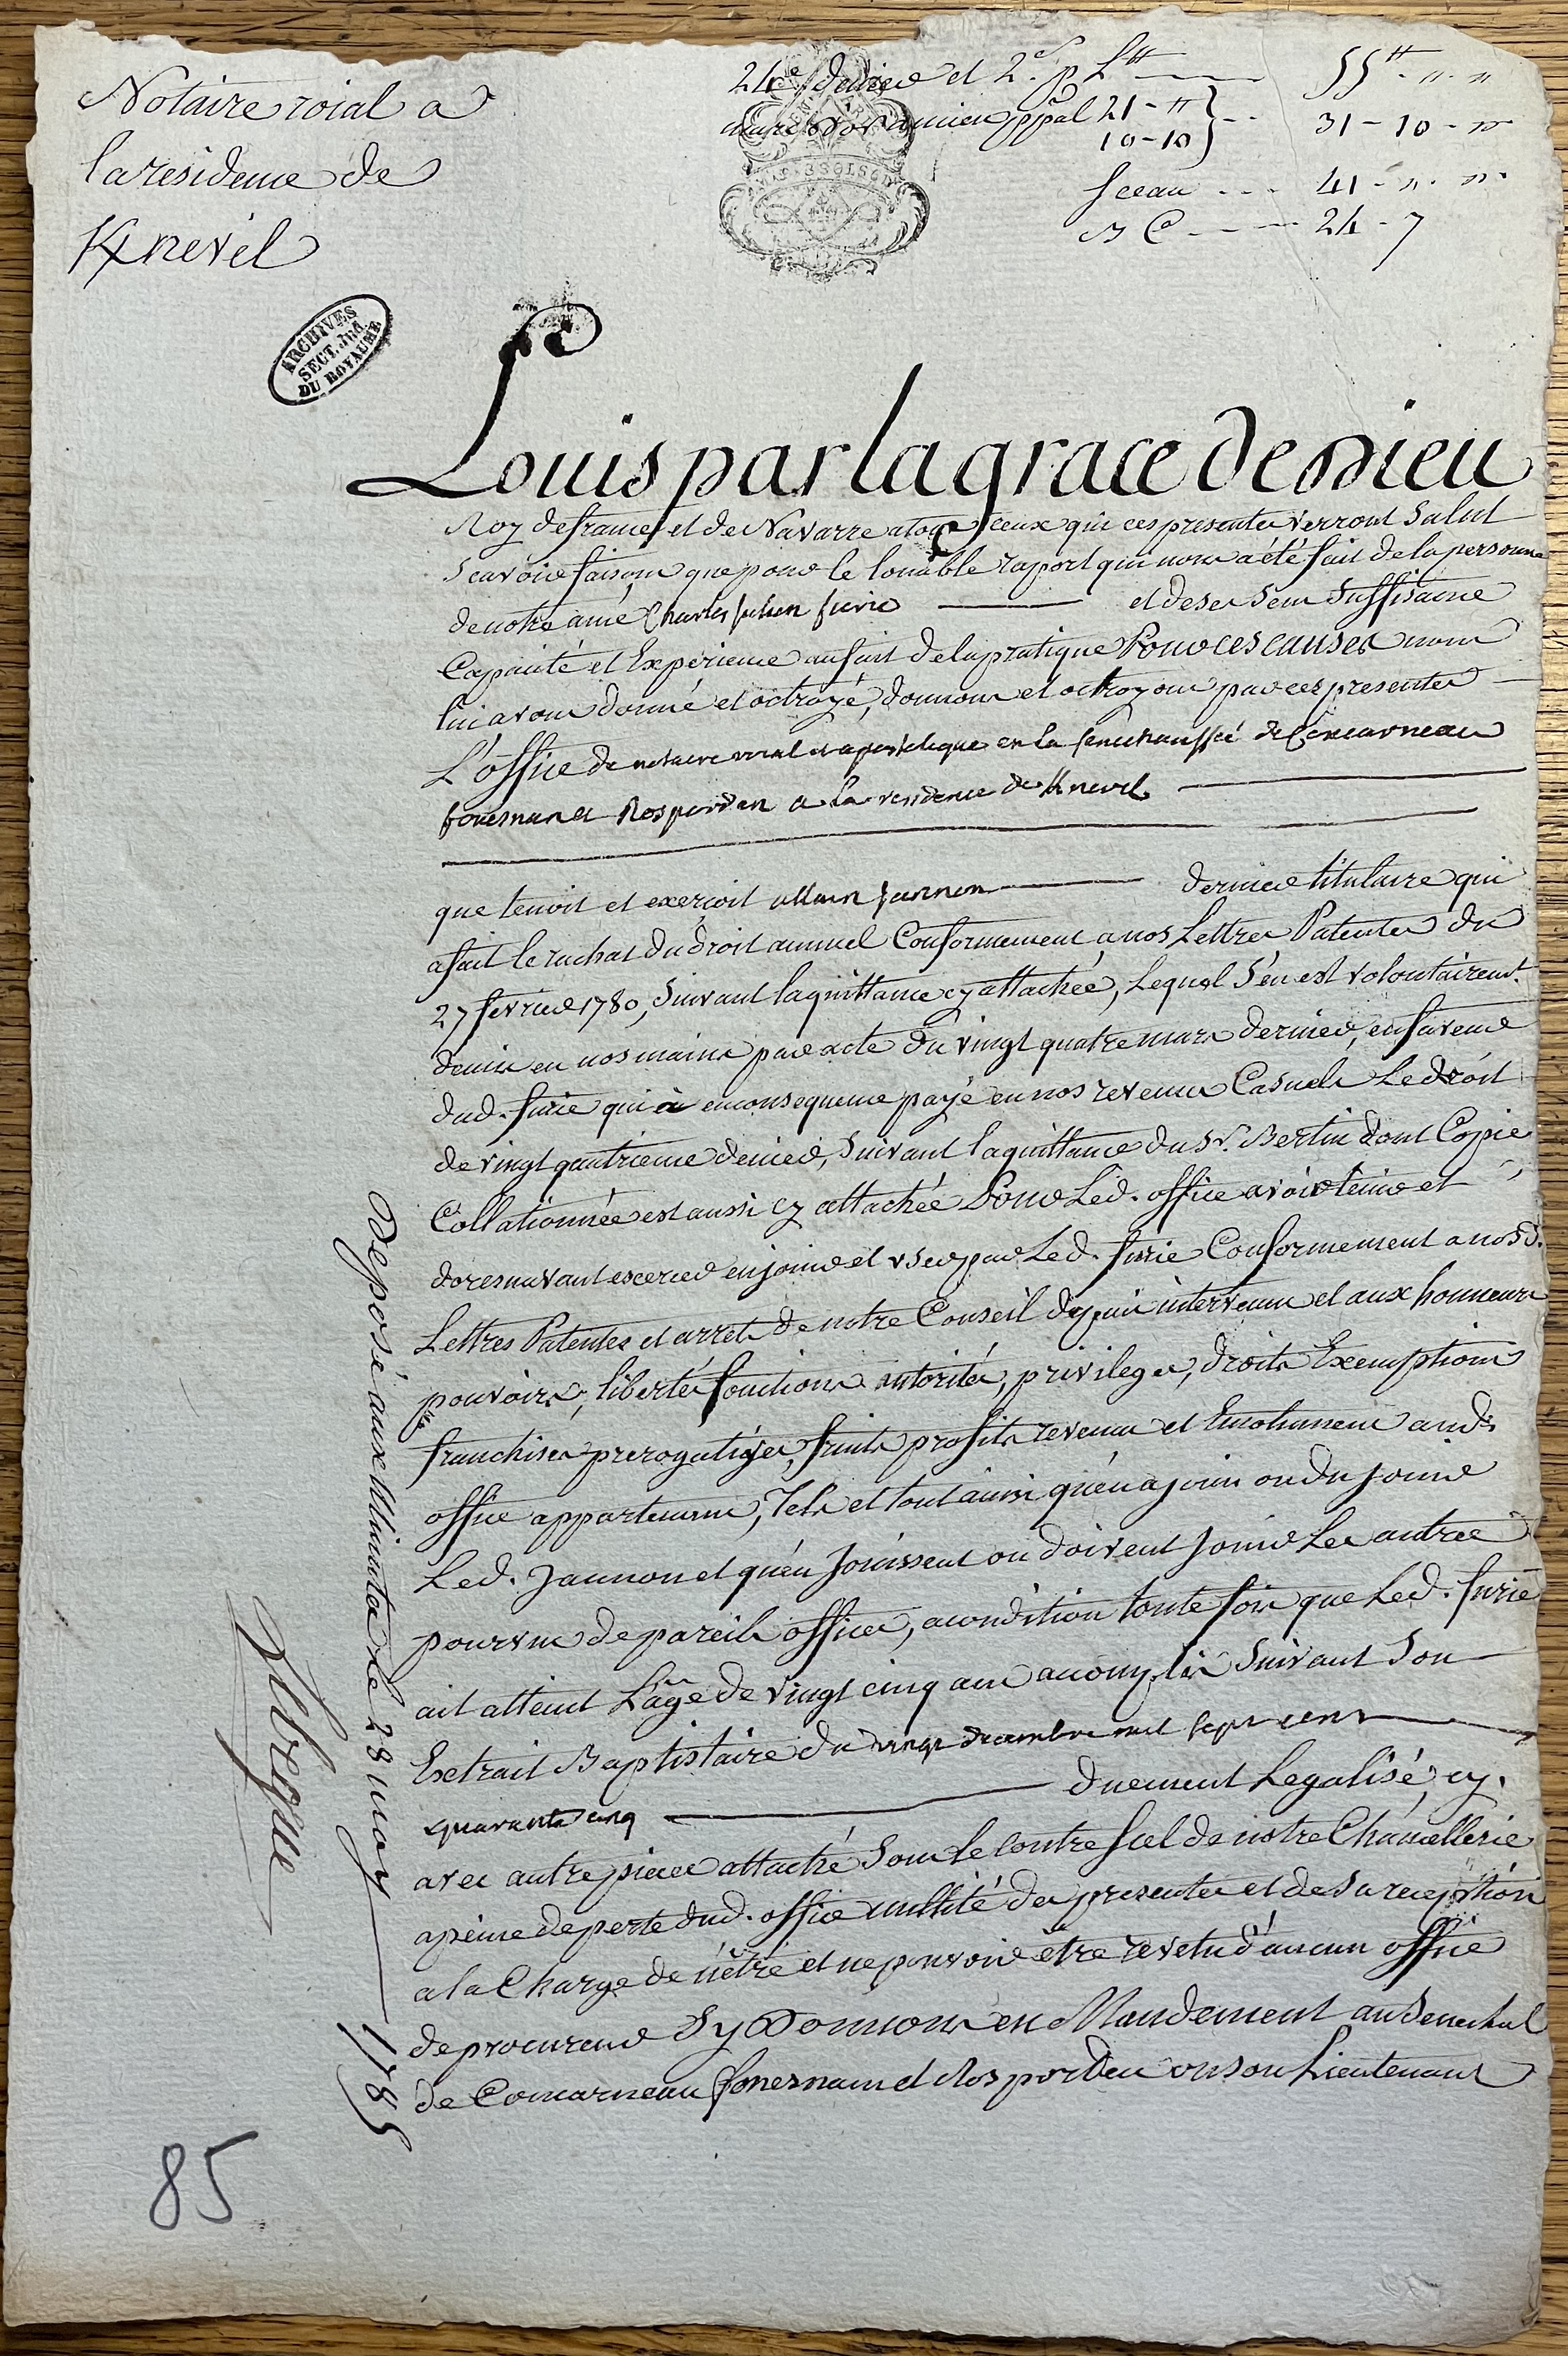 Notaire roial a
la residence de
Knevel
24e denier et 2. s. p. L tt ——— 55 tt . " . "
marc d'or ancien ppal 21 - " } - - 31 - 10 - "
10 - 10
sceau - - - 41 - " . "
B C - - - 24 - 7
ARCHIVES
SECT. JUD.
DU ROYAUME
Louis par la grace de Dieu
Roy de france et de Navarre a tous ceux qui ces presentes verront Salut
Scavoir faisons que pour le louable raport qui nous a été fait de la personne
de notre amé Charles Julien furic ——— et de ses sens Suffisance
Capacité et Experience au fait de la pratique Pour ces causes nous
lui avons donné et octroyé, donnons et octroyons par ces presentes
L'office de notaire roial et apostolique en la senechaussée de Concarneau
fouesnan et Rosporden a la residence de Knevel ———
que tenoit et exerçoit allain Jannon ——— dernier titulaire qui
a fait le rachat du droit annuel Conformement a nos Lettres Patentes du
27 fevrier 1780, Suivant la quittance cy attachée, Lequel S'en est volontairemt.
demis en nos mains par acte du vingt quatre mars dernier, en faveur
dud. furic qui à en consequence payé en nos revenus Casuels Le droit
de vingt quatrieme denier, Suivant la quittance du Sr. Bertin dont Copie
Collationnée est aussi cy attachée Pour Led. office avoir tenir et
doresnavant exercer en jouir et user par Led. furic Conformement a nosd.
Lettres Patentes et arrets de notre Conseil depuis intervenus et aux honneurs
pouvoirs, libertés fonctions autorités, privileges, droits Exemptions
franchises prerogatives, fruits profits revenus et Emolumens aud.
office appartenans, Tels et tout ainsi qu'en a joui ou du jouir
Led. Jannon et qu'en Jouissent ou doivent jouir Les autres
pourvus de pareils offices, a condition toute fois que Led. furic
ait atteint L'age de vingt cinq ans accomplis Suivant Son
Extrait Baptistaire du vingt decembre mil sept cent
quarante cinq ——— duement Legalisé, cy.
avec autre pieces attaché Sous le contre scel de notre Chancellerie
a peine de perte dud. office nullité des presentes et de Sa reception
a la Charge de n'être et ne pouvoir être revetu d'aucun office
de procureur Sy Donnons en Mandement au Senechal
de Concarneau fouesnam et Rosporden ou son Lieutenant
Deposé aux Minutes le 28 may ——— 1785
85